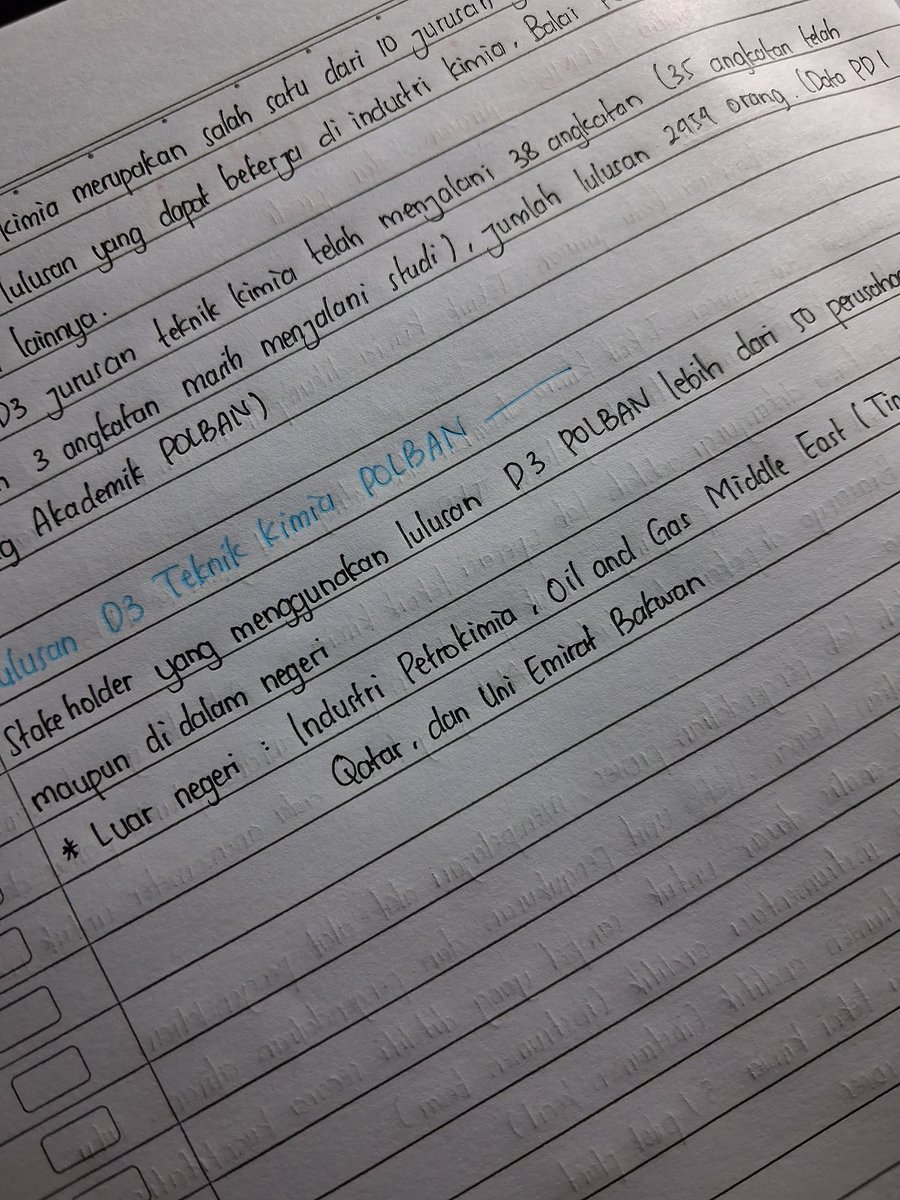 kimia merupakan salah satu dari 10 jurusan
lulusan yang dapat bekerja di industri kimia, Balai
lainnya.
D3 jurusan teknik kimia telah menjalani 38 angkatan (35 angkatan telah
3 angkatan masih menjalani studi), jumlah lulusan 2959 orang. (Data PD I
Akademik POLBAN)
lulusan D3 Teknik Kimia POLBAN
Stakeholder yang menggunakan lulusan D3 POLBAN lebih dari 50
maupun di dalam negeri
* Luar negeri : Industri Petrokimia, Oil and Gas Middle East (
Qatar, dan Uni Emirat Bakwan